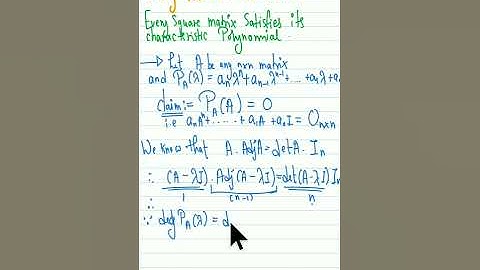 Every Square matrix Satisfies its
characteristic Polynomial.
→ Let A be any nxn matrix
and P_A(λ) = a_nλ^n + a_{n-1}λ^{n-1} + ... + a_1λ + a_0
claim:= P_A(A) = 0
i.e a_nA^n + ...... + a_1A + a_0I = O_{nxn}
We know that A. AdjA = detA. I_n
∴ (A-λI). Adj(A-λI) = det(A-λI) I_n
1 (n-1) n
∴
∵ deg P_A(λ) = d